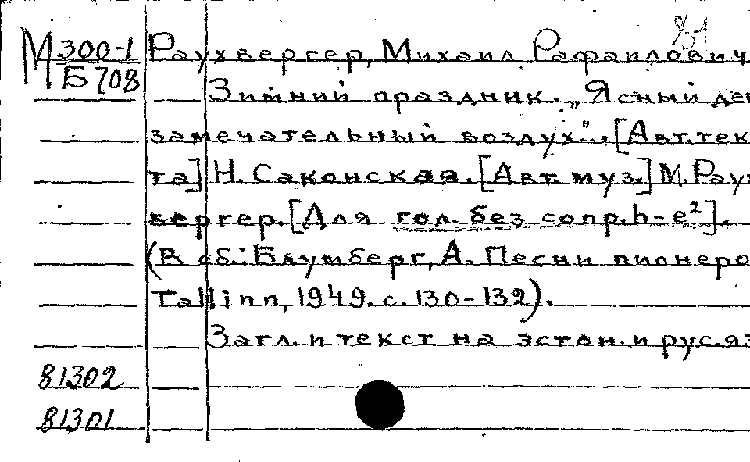 М 300-1 Раухвергер, Михаил Рафаилович
Б 708
Зимний праздник. „Ясный де
замечательный воздух"..[Авт.тек
та] Н. Саконская. [Авт. муз.] М. Раух
вергер. [Для гол. без сопр. h-e²].
(В сб.: Блумберг, А. Песни пионеро
Tallinn, 1949. с. 130-132).
Загл. и текст на эстон. и рус. яз
81302
81301